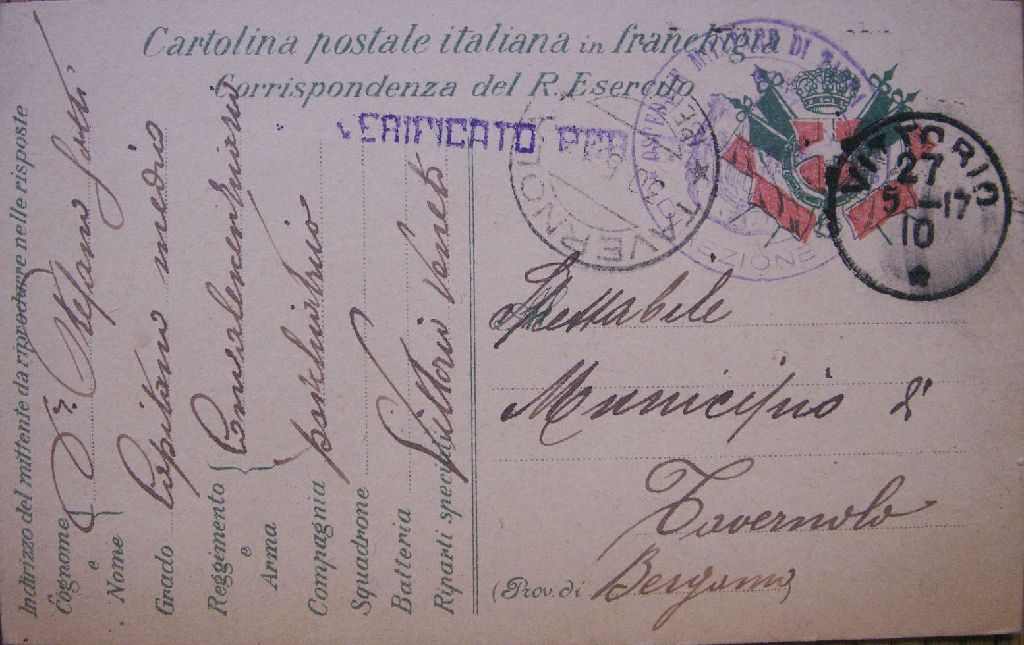 Cartolina postale italiana in franchigia
Corrispondenza del R. Esercito
VERIFICATO PER
VITTORIO
27
5-17
10
TAVERNOLA
ZIONE
Indirizzo del mittente da riprodurre nelle risposte
Cognome e Nome
Dr. Stefano
Grado
Capitano medico
Reggimento e Arma
Convalescenziario
Compagnia
Squadrone
Batteria
Riparti speciali
Vittorio Veneto
Spettabile
Municipio di
Tavernola
(Prov. di Bergamo)